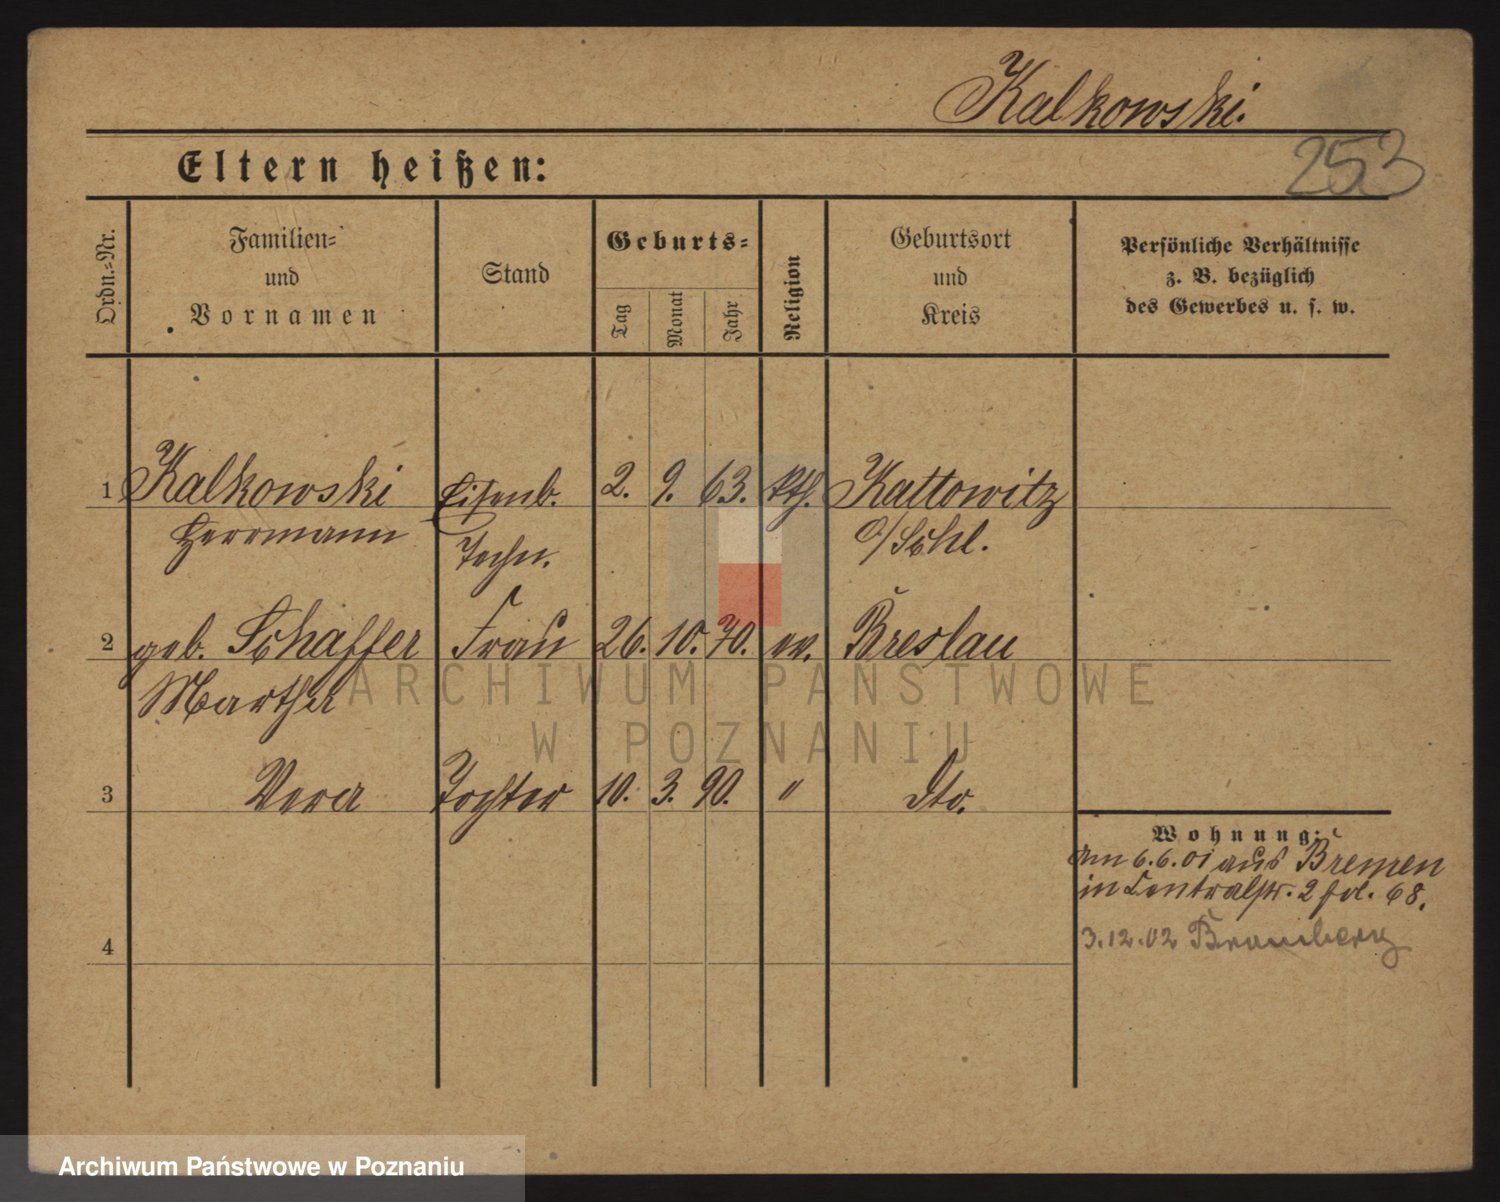 Kalkowski.
253
Eltern heißen:
Ordn.-Nr.
Familien-
und
Vornamen
Stand
Geburts-
Tag
Monat
Jahr
Religion
Geburtsort
und
Kreis
Persönliche Verhältnisse
z. B. bezüglich
des Gewerbes u. s. w.
1 Kalkowski Eisenb. 2. 9. 63. kth. Kattowitz
Herrmann Techn. O/Schl.
2 geb. Schaffer Frau 26. 10. 70. ev. Breslau
Martha
ARCHIWUM PAŃSTWOWE
W POZNANIU
3 Vera Tochter 10. 3. 90. " dto.
Wohnung:
Am 6.6.01 aus Bremen
in Centralstr. 2 fol. 68.
4
3.12.02 Bromberg
Archiwum Państwowe w Poznaniu